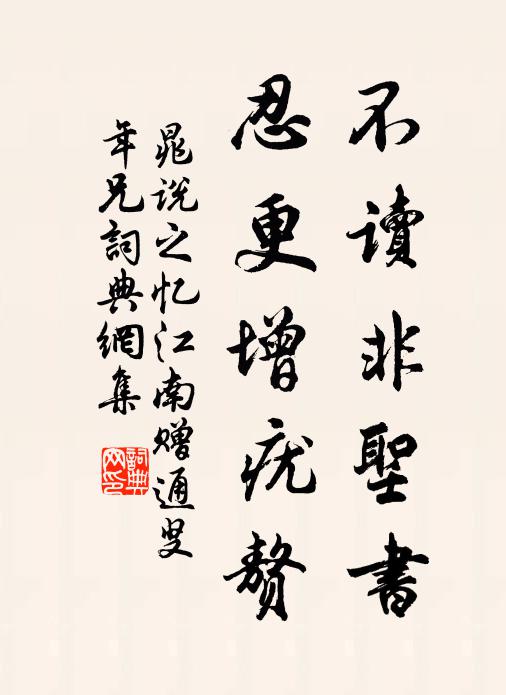 不读非聖書
忍更增疣贅
晁说之忆江南赠通叟
年兄詞典網集
詞典网印